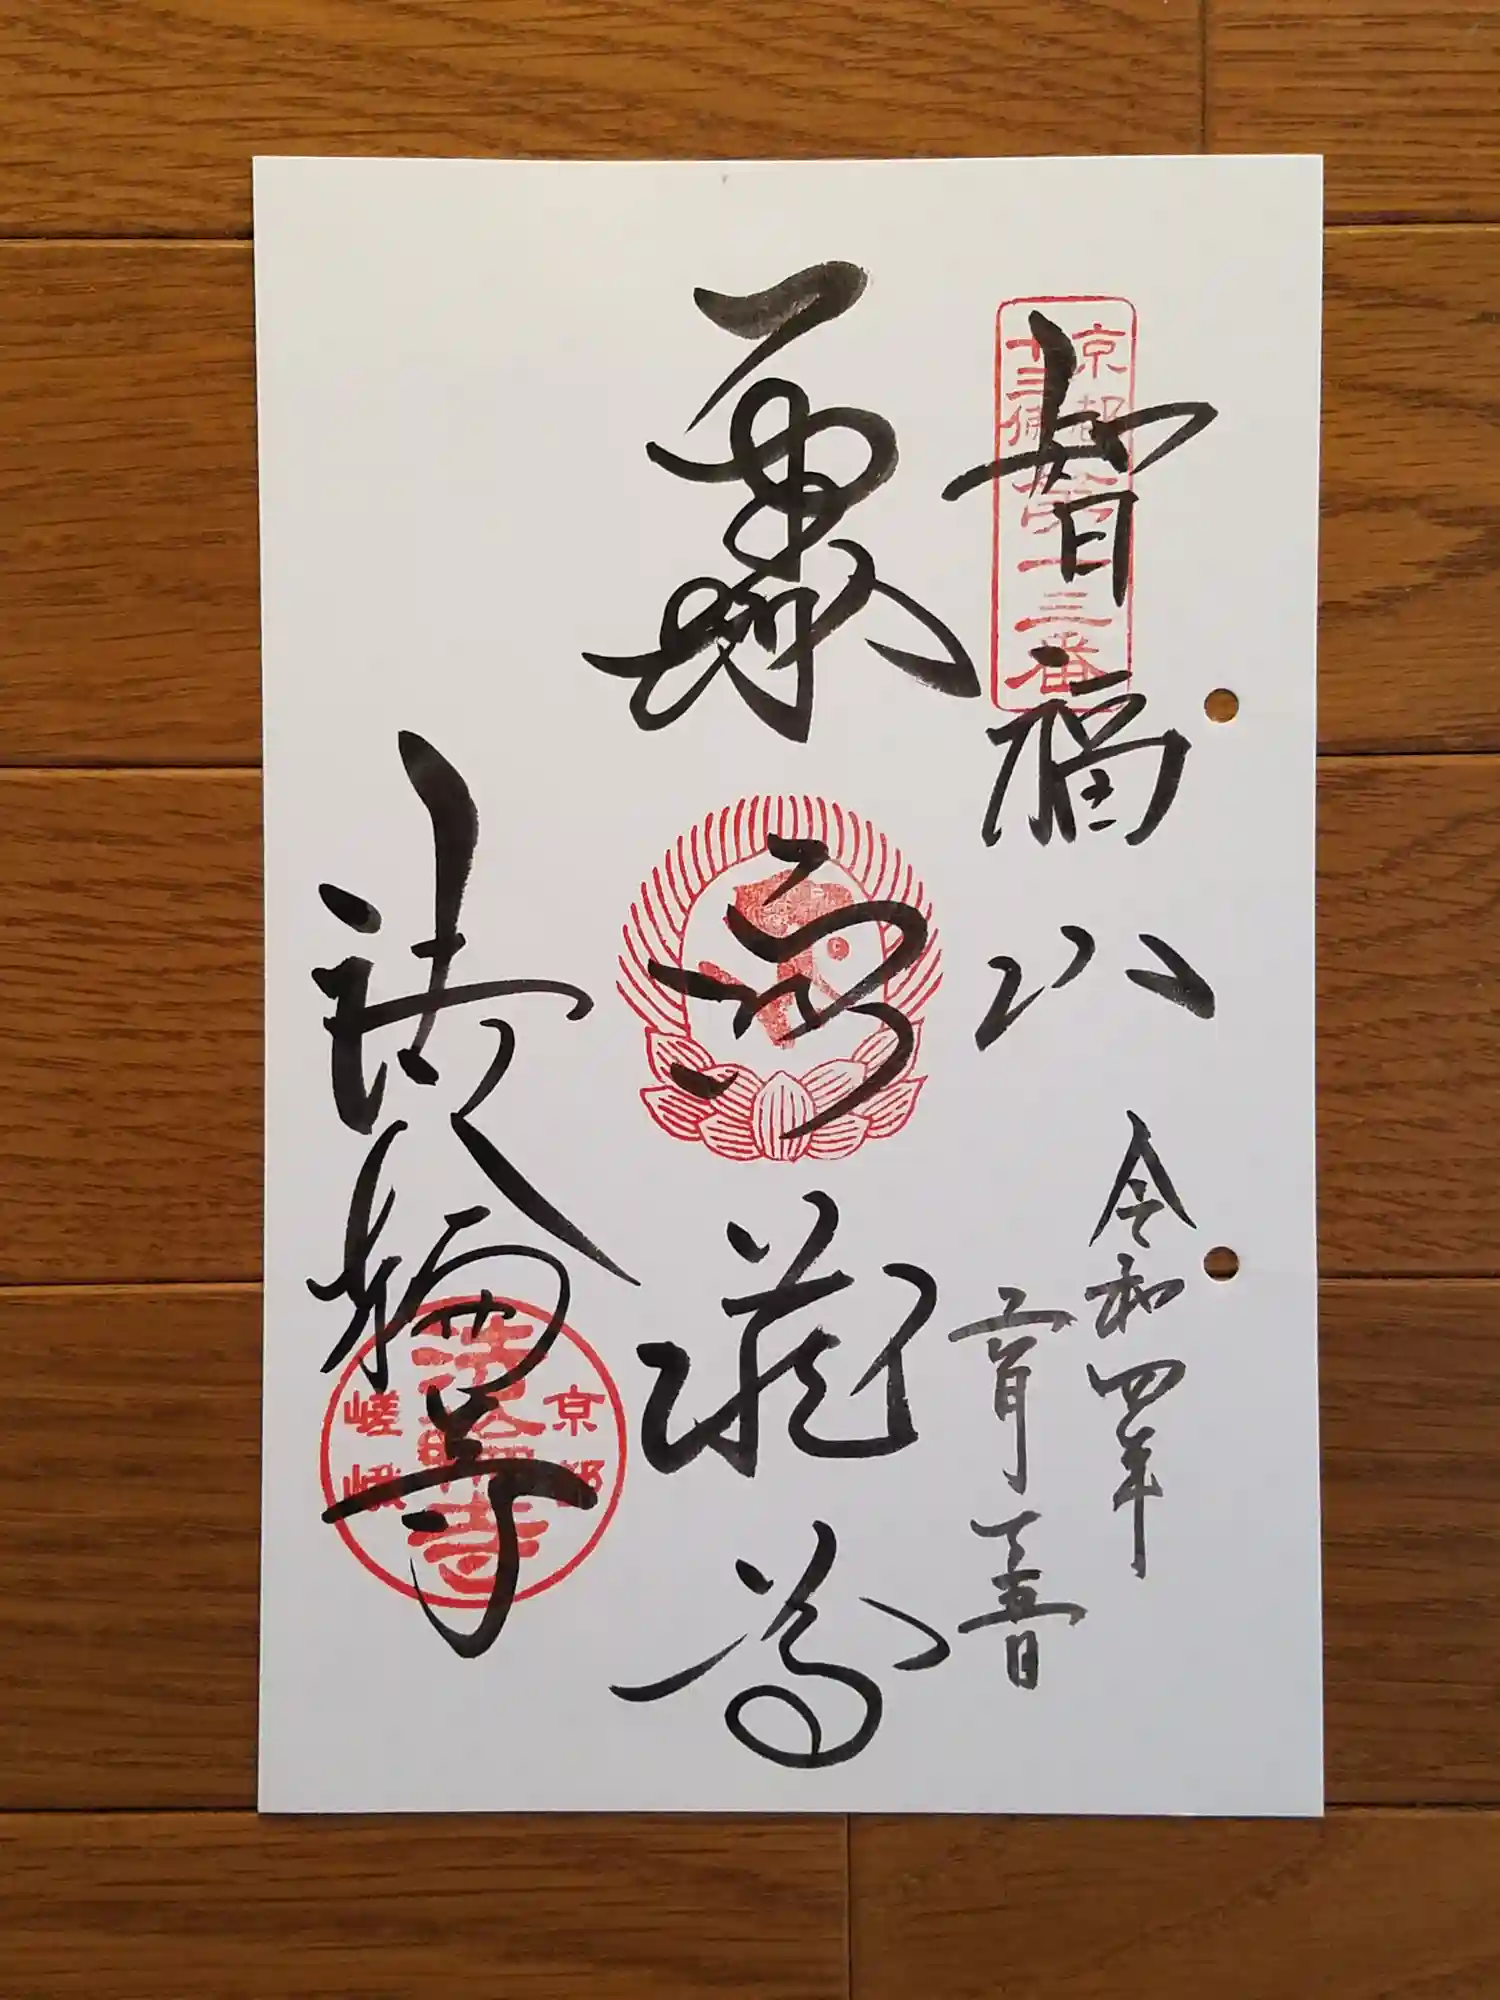 京都
十三佛
第十三番
智福山
令和四年
虚空蔵尊
法輪寺
京都
法輪寺
嵯峨